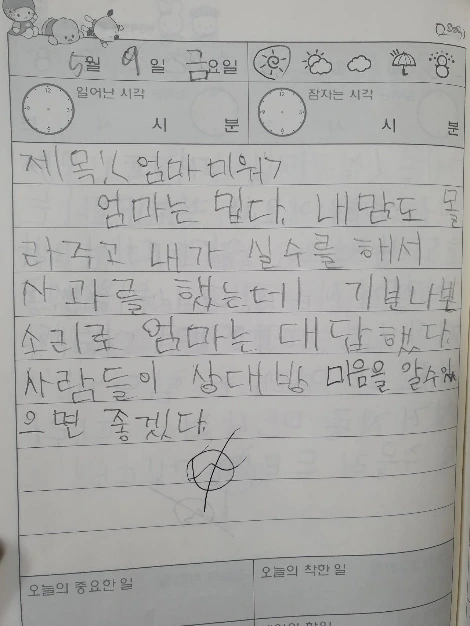 5월 9일 금요일
일어난 시각
잠자는 시각
시 분
시 분
제목:< 엄마 미워>
엄마는 밉다. 내맘도 몰
라주고 내가 실수를 해서
사과를 했는데 기분나쁜
소리로 엄마는 대답했다.
사람들이 상대방 마음을 알수있
으면 좋겠다.
오늘의 중요한 일
오늘의 착한 일